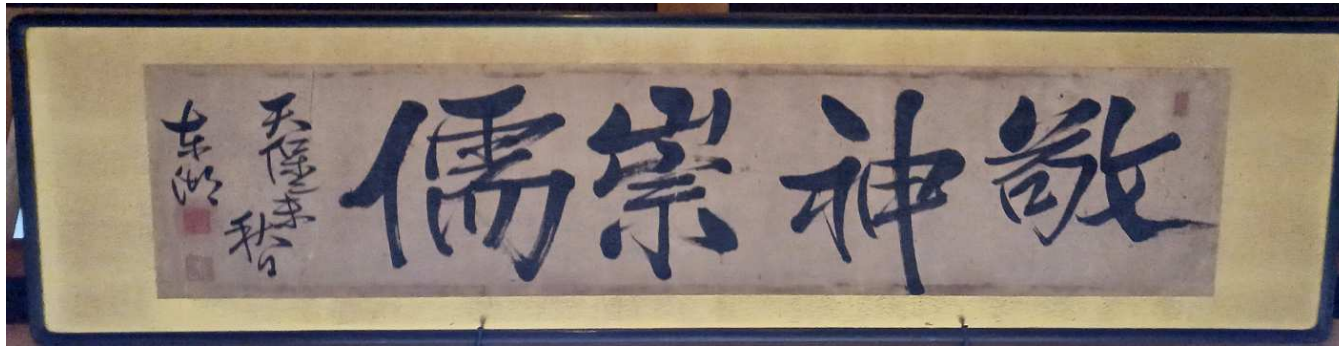 敬神崇儒
天保乙未
秋日
東湖